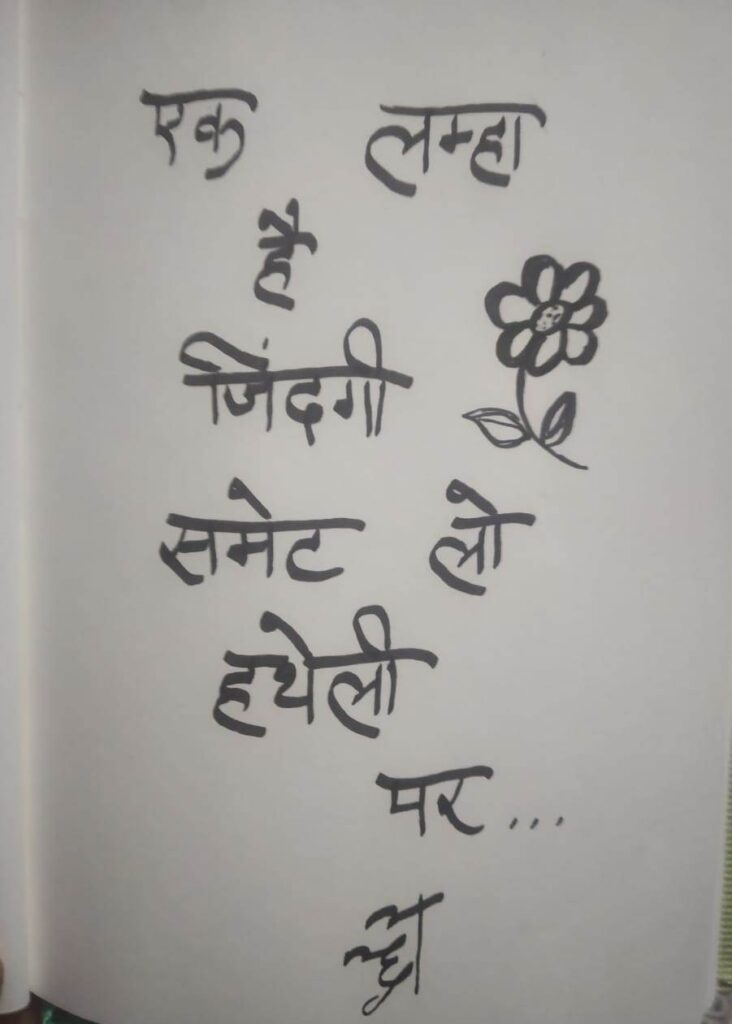 एक लम्हा
है
जिंदगी
समेट लो
हथेली
पर...